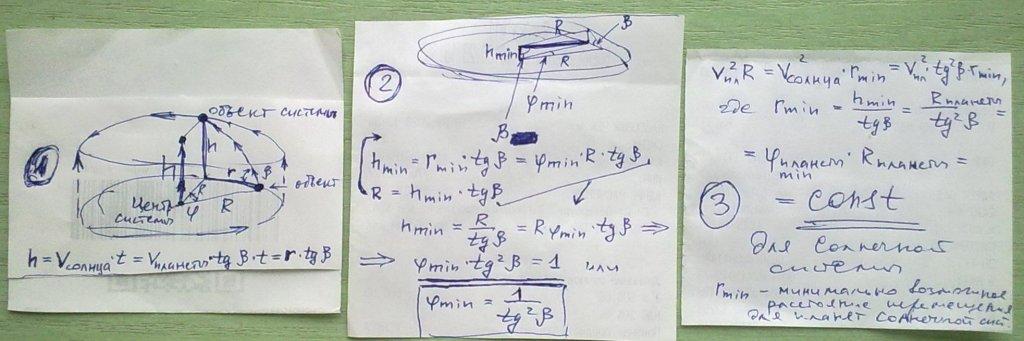 1
объект системы
h
H
r
β
объект
R
центр
системы
φ
R
h = Vсолнца·t = Vпланеты·tg β·t = r·tg β
2
R
β
hmin
R
φmin
β
hmin = rmin·tg β = φmin·R·tg β
R = hmin·tg β
hmin = R/tg β = R φmin·tg β ⇒
⇒ φmin·tg²β = 1 или
φmin = 1/tg²β
V²пл R = V²солнца·rmin = V²пл·tg²β·rmin,
где rmin = hmin/tgβ = Rпланеты/tg²β =
= φпланеты min·Rпланеты =
3
= const
для солнечной
системы
rmin - минимально возможное
расстояние перемещения
для планет солнечной сист